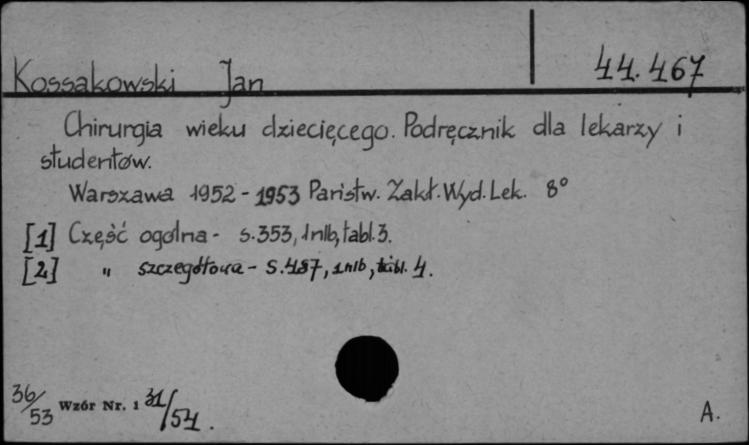 Kossakowski Jan 44.467
Chirurgia wieku dziecięcego. Podręcznik dla lekarzy i
studentów.
Warszawa 1952-1953 Państw. Zakł. Wyd. Lek. 8°
[1] Część ogólna - s.353, 1 nlb, tabl. 3.
[2] " szczegółowa - s.487, 1 nlb, tabl. 4.
36/53 Wzór Nr. 1 31/54.
A.